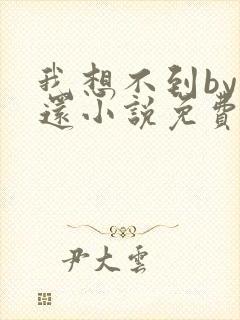 我想不到by
還小說免費
尹大雲